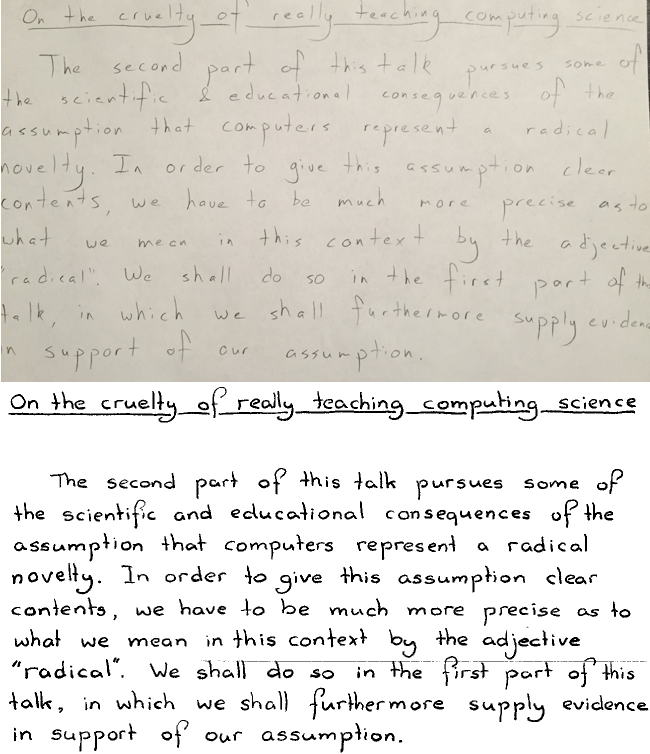 On the cruelty of really teaching computing science
The second part of this talk pursues some of
the scientific & educational consequences of the
assumption that computers represent a radical
novelty. In order to give this assumption clear
contents, we have to be much more precise as to
what we mean in this context by the adjective
"radical". We shall do so in the first part of th
talk, in which we shall furthermore supply evidenc
in support of our assumption.
On the cruelty of really teaching computing science
The second part of this talk pursues some of
the scientific and educational consequences of the
assumption that computers represent a radical
novelty. In order to give this assumption clear
contents, we have to be much more precise as to
what we mean in this context by the adjective
"radical". We shall do so in the first part of this
talk, in which we shall furthermore supply evidence
in support of our assumption.